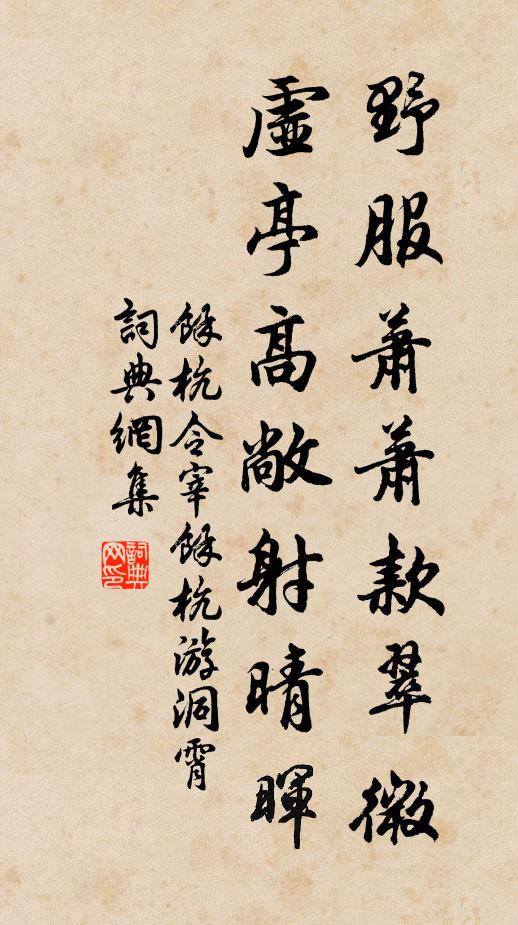 野服蕭蕭款翠微
虛亭高敞射晴暉
餘杭令宰餘杭游洞霄
詞典網集
詞典网印